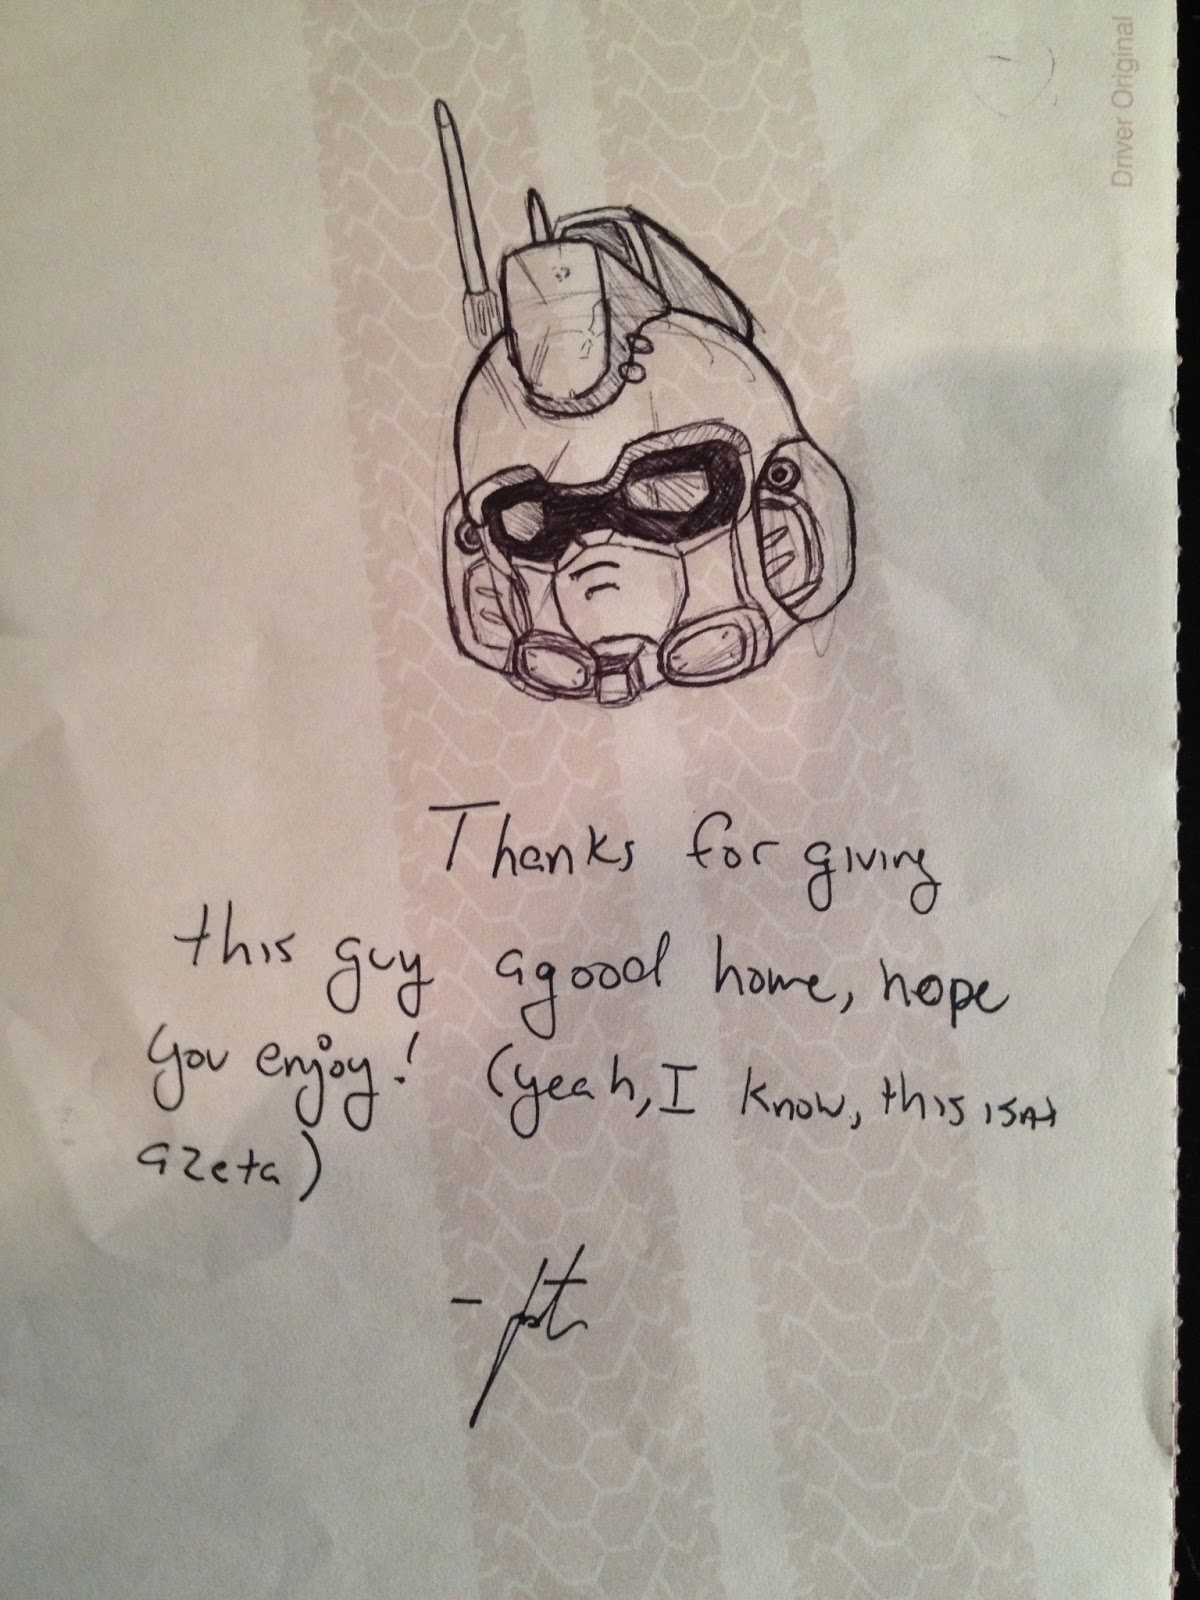 Driver Original
Thanks for giving
this guy a good home, hope
you enjoy! (yeah, I know, this isnt
a zeta)